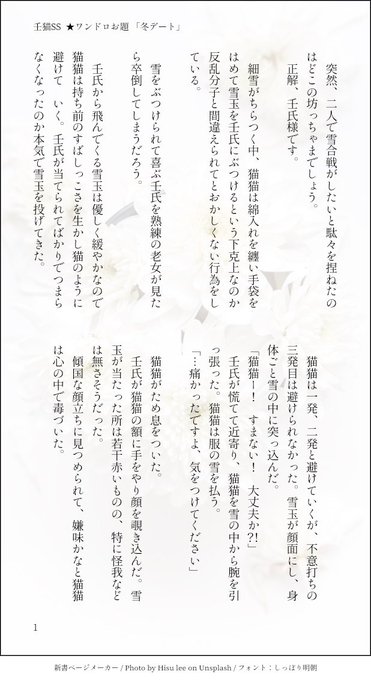 壬猫SS ★ワンドロお題 「冬デート」
突然、二人で雪合戦がしたいと駄々を捏ねたの
はどこの坊っちゃまでしょう。
正解、壬氏様です。
細雪がちらつく中、猫猫は綿入れを纏い手袋を
はめて雪玉を壬氏にぶつけるという下克上なのか
反乱分子と間違えられてとおかしくない行為をし
ている。
雪をぶつけられて喜ぶ壬氏を熟練の老女が見た
ら卒倒してしまうだろう。
壬氏から飛んでくる雪玉は優しく緩やかなので
猫猫は持ち前のすばしっこさを生かし猫のように
避けて いく。壬氏が当てられてばかりでつまら
なくなったのか本気で雪玉を投げてきた。
猫猫は一発、二発と避けていくが、不意打ちの
三発目は避けられなかった。雪玉が顔面にし、身
体ごと雪の中に突っ込んだ。
「猫猫ー！ すまない！ 大丈夫か?!」
壬氏が慌てて近寄り、猫猫を雪の中から腕を引
っ張った。猫猫は服の雪を払う。
「…痛かったですよ、気をつけてください」
猫猫がため息をついた。
壬氏が猫猫の額に手をやり顔を覗き込んだ。雪
玉が当たった所は若干赤いものの、特に怪我など
は無さそうだった。
傾国な顔立ちに見つめられて、嫌味かなと猫猫
は心の中で毒づいた。
1
新書ページメーカー / Photo by Hisu lee on Unsplash / フォント：しっぽり明朝